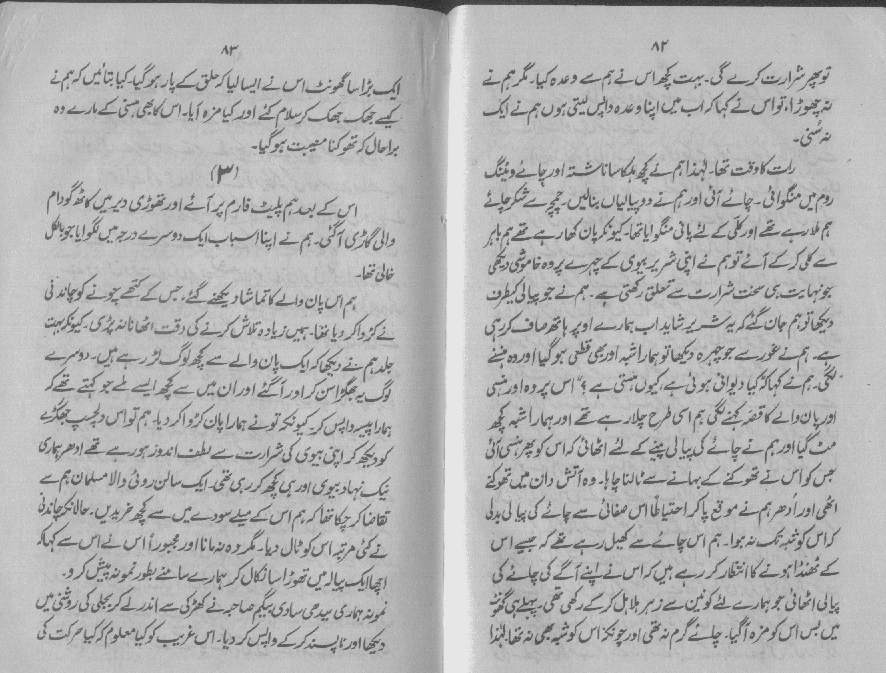 ۸۲
تو پھر شرارت کرے گی۔ بہت کچھ اس نے ہم سے وعدہ کیا۔ مگر ہم نے
نہ چھوڑا، تو اس نے کہا کہ اب میں اپنا وعدہ واپس لیتی ہوں ہم نے ایک
نہ سُنی۔
رات کا وقت تھا۔ لہٰذا ہم نے کچھ ہلکا سا ناشتہ اور چائے ویٹنگ
روم میں منگوائی۔ چائے آئی اور ہم نے دو پیالیاں بنالیں۔ چمچے سے شکر چائے
ہم ملا رہے تھے اور کلّی کے لئے پانی منگوایا تھا۔ کیونکہ پان کھا رہے تھے ہم باہر
سے کلی کر کے آئے تو ہم نے اپنی شریر بیوی کے چہرے پر وہ خاموشی دیکھی
جو نہایت ہی سخت شرارت سے تعلق رکھتی ہے۔ ہم نے جو پیالی کیطرف
دیکھا تو ہم جان گئے کہ یہ شریر شاید اب ہمارے اوپر ہاتھ صاف کر رہی
ہے۔ ہم نے غور سے جو چہرہ دیکھا تو ہمارا شبہ اور بھی قطعی ہو گیا اور وہ ہنسنے
لگی۔ ہم نے کہا کہ "کیا دیوانی ہوئی ہے، کیوں ہنستی ہے؟" اس پر وہ اور ہنسی
اور پان والے کا قصّہ کہنے لگی ہم اسی طرح چلا رہے تھے اور ہمارا شبہ کچھ
مٹ گیا اور ہم نے چائے کی پیالی پینے کے لئے اٹھائی کہ اس کو پھر ہنسی آئی
جس کو اس نے تھوکنے کے بہانے سے ٹالنا چاہا۔ وہ آتش دان میں تھوکنے
اٹھی اور اُدھر ہم نے موقع پا کر احتیاطاً اس صفائی سے چائے کی پیالی بدلی
کہ اس کو شبہ تک نہ ہوا۔ ہم اس چائے سے کھیل رہے تھے کہ جیسے اس
کے ٹھنڈا ہونے کا انتظار کر رہے ہیں کہ اس نے اپنے آگے کی چائے کی
پیالی اٹھائی جو ہمارے لئے کونین سے زہر ہلاہل کر کے رکھی تھی۔ پہلے ہی گھونٹ
میں بس اس کو مزہ آگیا۔ چائے گرم نہ تھی اور چونکہ اس کو شبہ بھی نہ تھا لہٰذا
۸۳
ایک بڑا سا گھونٹ اس نے ایسا لیا کہ حلق کے پار ہو گیا۔ کیا بتائیں کہ ہم نے
کیسے جھک جھک کر سلام کئے اور کیا مزہ آیا۔ اس کا بھی ہنسی کے مارے وہ
برا حال کہ تھوکنا مصیبت ہو گیا۔
(۳)
اس کے بعد ہم پلیٹ فارم پر آئے اور تھوڑی دیر میں کاٹھ گودام
والی گاڑی آگئی۔ ہم نے اپنا اسباب ایک دوسرے درجہ میں لگوایا جو بالکل
خالی تھا۔
ہم اس پان والے کا تماشا دیکھنے گئے، جس کے کتھے چونے کو چاندنی
نے کڑوا کر دیا تھا۔ ہمیں زیادہ تلاش کرنے کی دقت اٹھانا نہ پڑی۔ کیونکہ بہت
جلد ہم نے دیکھا کہ ایک پان والے سے کچھ لوگ لڑ رہے ہیں۔ دوسرے
لوگ یہ جھگڑا سن کر اور آگئے اور ان میں سے کچھ ایسے ملے جو کہتے تھے کہ
ہمارا پیسہ واپس کر۔ کیونکہ تو نے ہمارا پان کڑوا کر دیا۔ ہم تو اس دلچسپ جھگڑے
کو دیکھ کر اپنی بیوی کی شرارت سے لطف اندوز ہو رہے تھے ادھر ہماری
نیک نہاد بیوی اور ہی کچھ کر رہی تھی۔ ایک سالن روٹی والا مسلمان ہم سے
تقاضا کر چکا تھا کہ ہم اس کے میلے سودے میں سے کچھ خریدیں۔ حالانکہ چاندنی
نے کئی مرتبہ اس کو ٹال دیا۔ مگر وہ نہ مانا اور مجبوراً اس نے اس سے کہا کہ
اچھا ایک پیالہ میں تھوڑا سا نکال کر ہمارے سامنے بطور نمونہ پیش کرو۔
نمونہ ہماری سیدھی سادی بیگم صاحبہ نے کھڑکی سے اندر لے کر بجلی کی روشنی میں
دیکھا اور ناپسند کر کے واپس کر دیا۔ اس غریب کو کیا معلوم کہ کیا حرکت کی